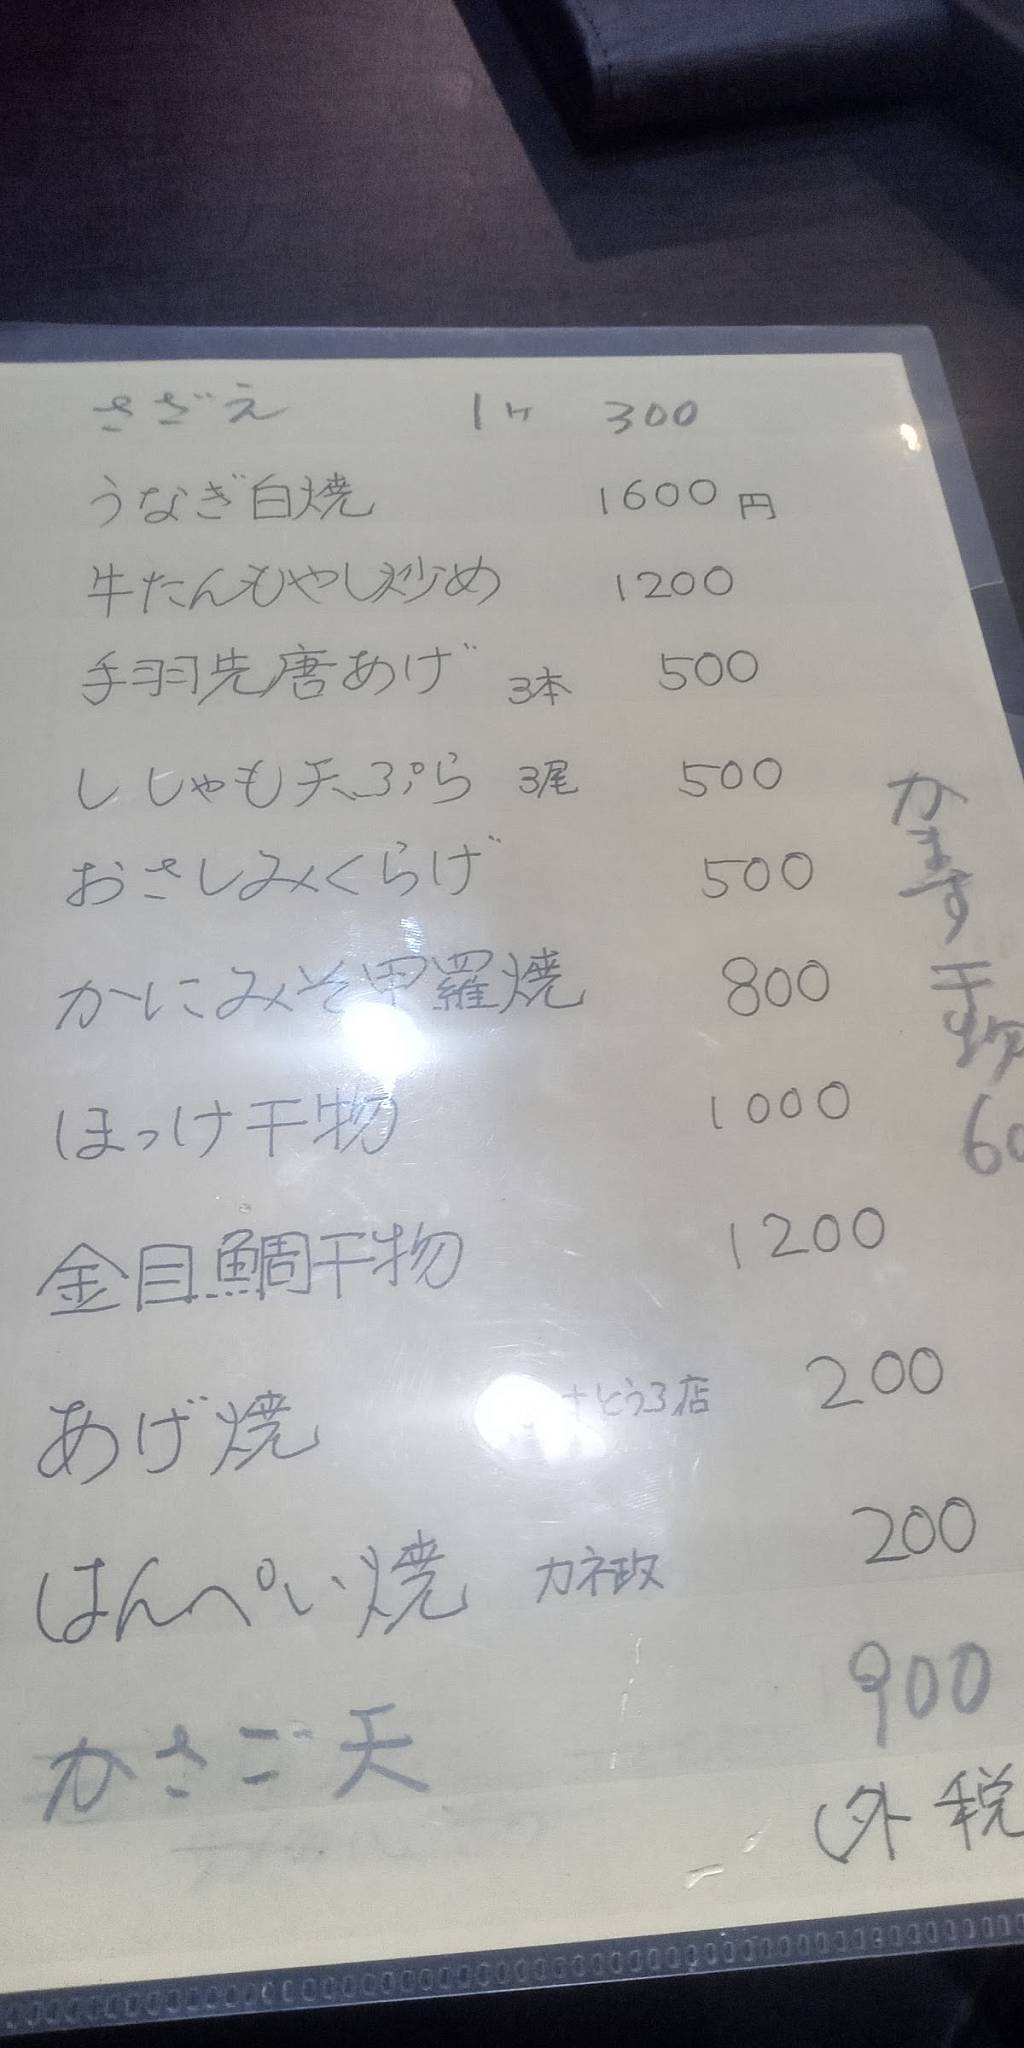 さざえ 1ヶ 300
うなぎ白焼 1600円
牛たんもやし炒め 1200
手羽先唐あげ 3本 500
ししゃも天ぷら 3尾 500
おさしみくらげ 500
かにみそ甲羅焼 800
ほっけ干物 1000
金目鯛干物 1200
あげ焼 200
はんぺい焼 カネ政 200
かさご天 900
(外税
かます干物